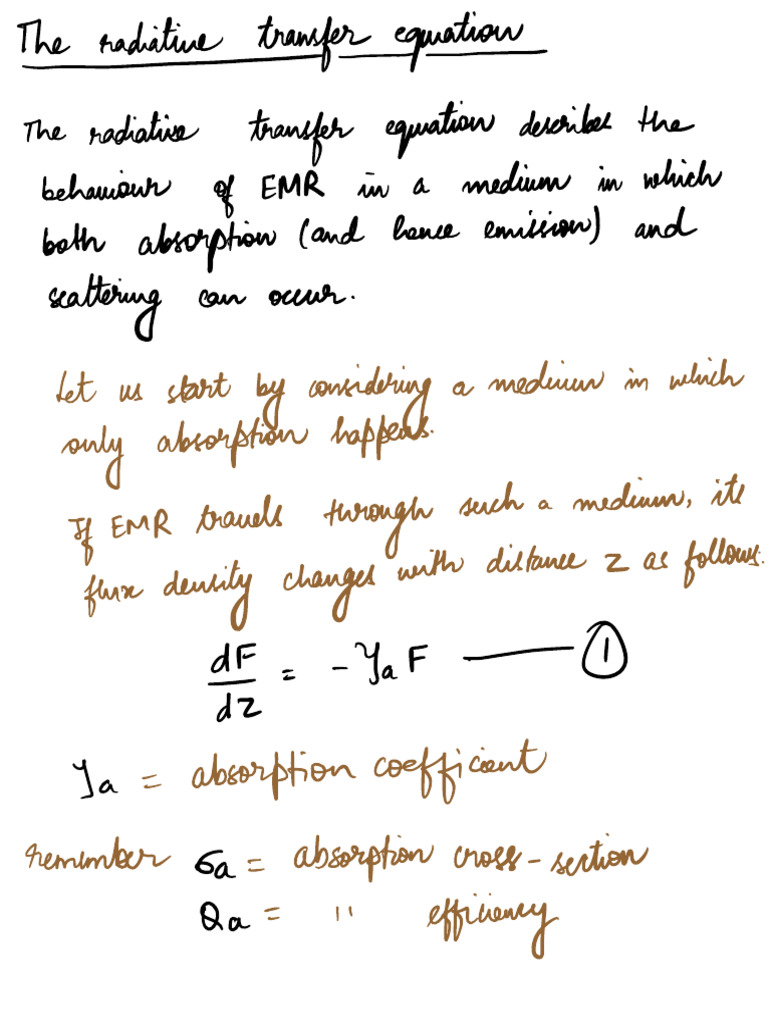 The radiative transfer equation
The radiative transfer equation describes the
behaviour of EMR in a medium in which
both absorption (and hence emission) and
scattering can occur.
Let us start by considering a medium in which
only absorption happens.
If EMR travels through such a medium, its
flux density changes with distance z as follows:
dF/dz = - γa F ——— ①
γa = absorption coefficient
remember σa = absorption cross-section
Qa = " efficiency